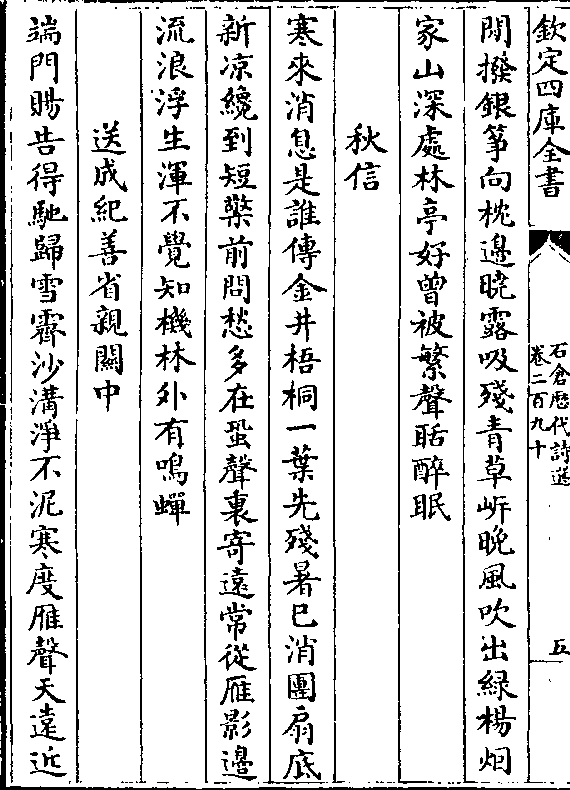 欽定四庫全書
石倉歷代詩選
卷二百九十
五
閒撥銀筝向枕邊曉露吸殘青草岸晚風吹出綠楊烟
家山深處林亭好曾被繁聲聒醉眠
秋信
寒來消息是誰傳金井梧桐一葉先殘暑已消團扇底
新凉纔到短檠前問愁多在蛩聲裏寄遠常從雁影邊
流浪浮生渾不覺知機林外有鳴蟬
送成紀善省親關中
端門賜告得馳歸雪霽沙溝淨不泥寒度雁聲天遠近